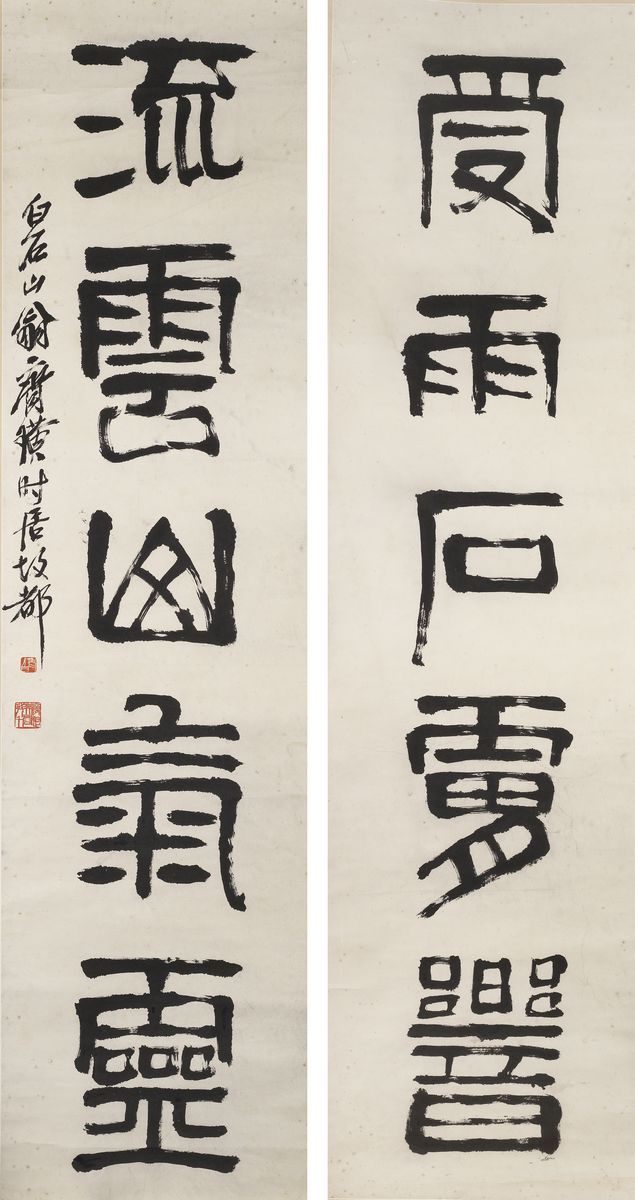 受雨石膚響
流雲山氣靈
白石山翁齊璜时居故都